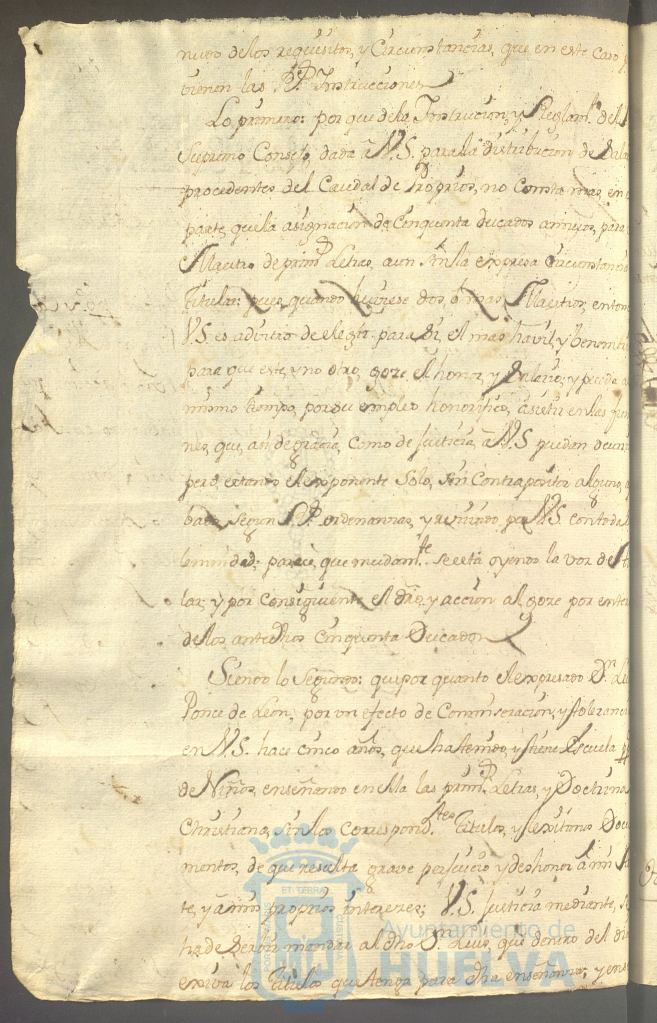 nuevo de los requisitos, y Circunstancias, que en este caso p
vienen las Rs. Instrucciones
Lo primero: por que de la Instruccion, y Reglamto. del
Supremo Consejo, dada à V.S. para la distribucion de Sala
procedentes del Caudal de Propios, no consta mas, en
parte, que la asignación de Cinquenta ducados annuos, para
Maestro de primeras Letras, aun la expresa Circunstancia
Titular: pues, quando huviese dos, ò mas Maestros, enton
V.S. es advitro de elegir para sí, el mas havil, y benemeri
para que este, y no otro, goze el honor, y Salario; y pueda a
mismo tiempo, por su empleo honorifico, asistir en las
nes, que, asi de gracia, como de Justicia, à V.S. puedan
pero, estando el exponente Solo, sin Contrapositor alguno,
segun Rs. ordenanzas, y por V.S. con toda
lemnidad; parece, que mudamte. se está oyendo la voz de ti
lar, y por Consiguiente, el dro. y acción al goze por ente
de los antedhos Cinquenta Ducados
Siendo lo Segundo: que por quanto el expresado Dn. Lu
Ponce de Leon, por un efecto de Commiseracion, y tolerancia
en V.S. hace cinco años, que ha tenido, y tiene Escuela
de Niños, enseñando en ella las primeras Letras, y Doctrina
Christiana, sin los correspondtes. Titulos, y lexitimos Docu
mentos, de que resulta grave perjuicio, y deshonor à mi
te, y à mis proprios intereses; V.S. Justicia mediante, se
ha de servir mandar al dho Dn. Luis, que dentro del dia
exiva los Titulos que tenga para dha enseñanza; y en
Ayuntamiento de
HUELVA